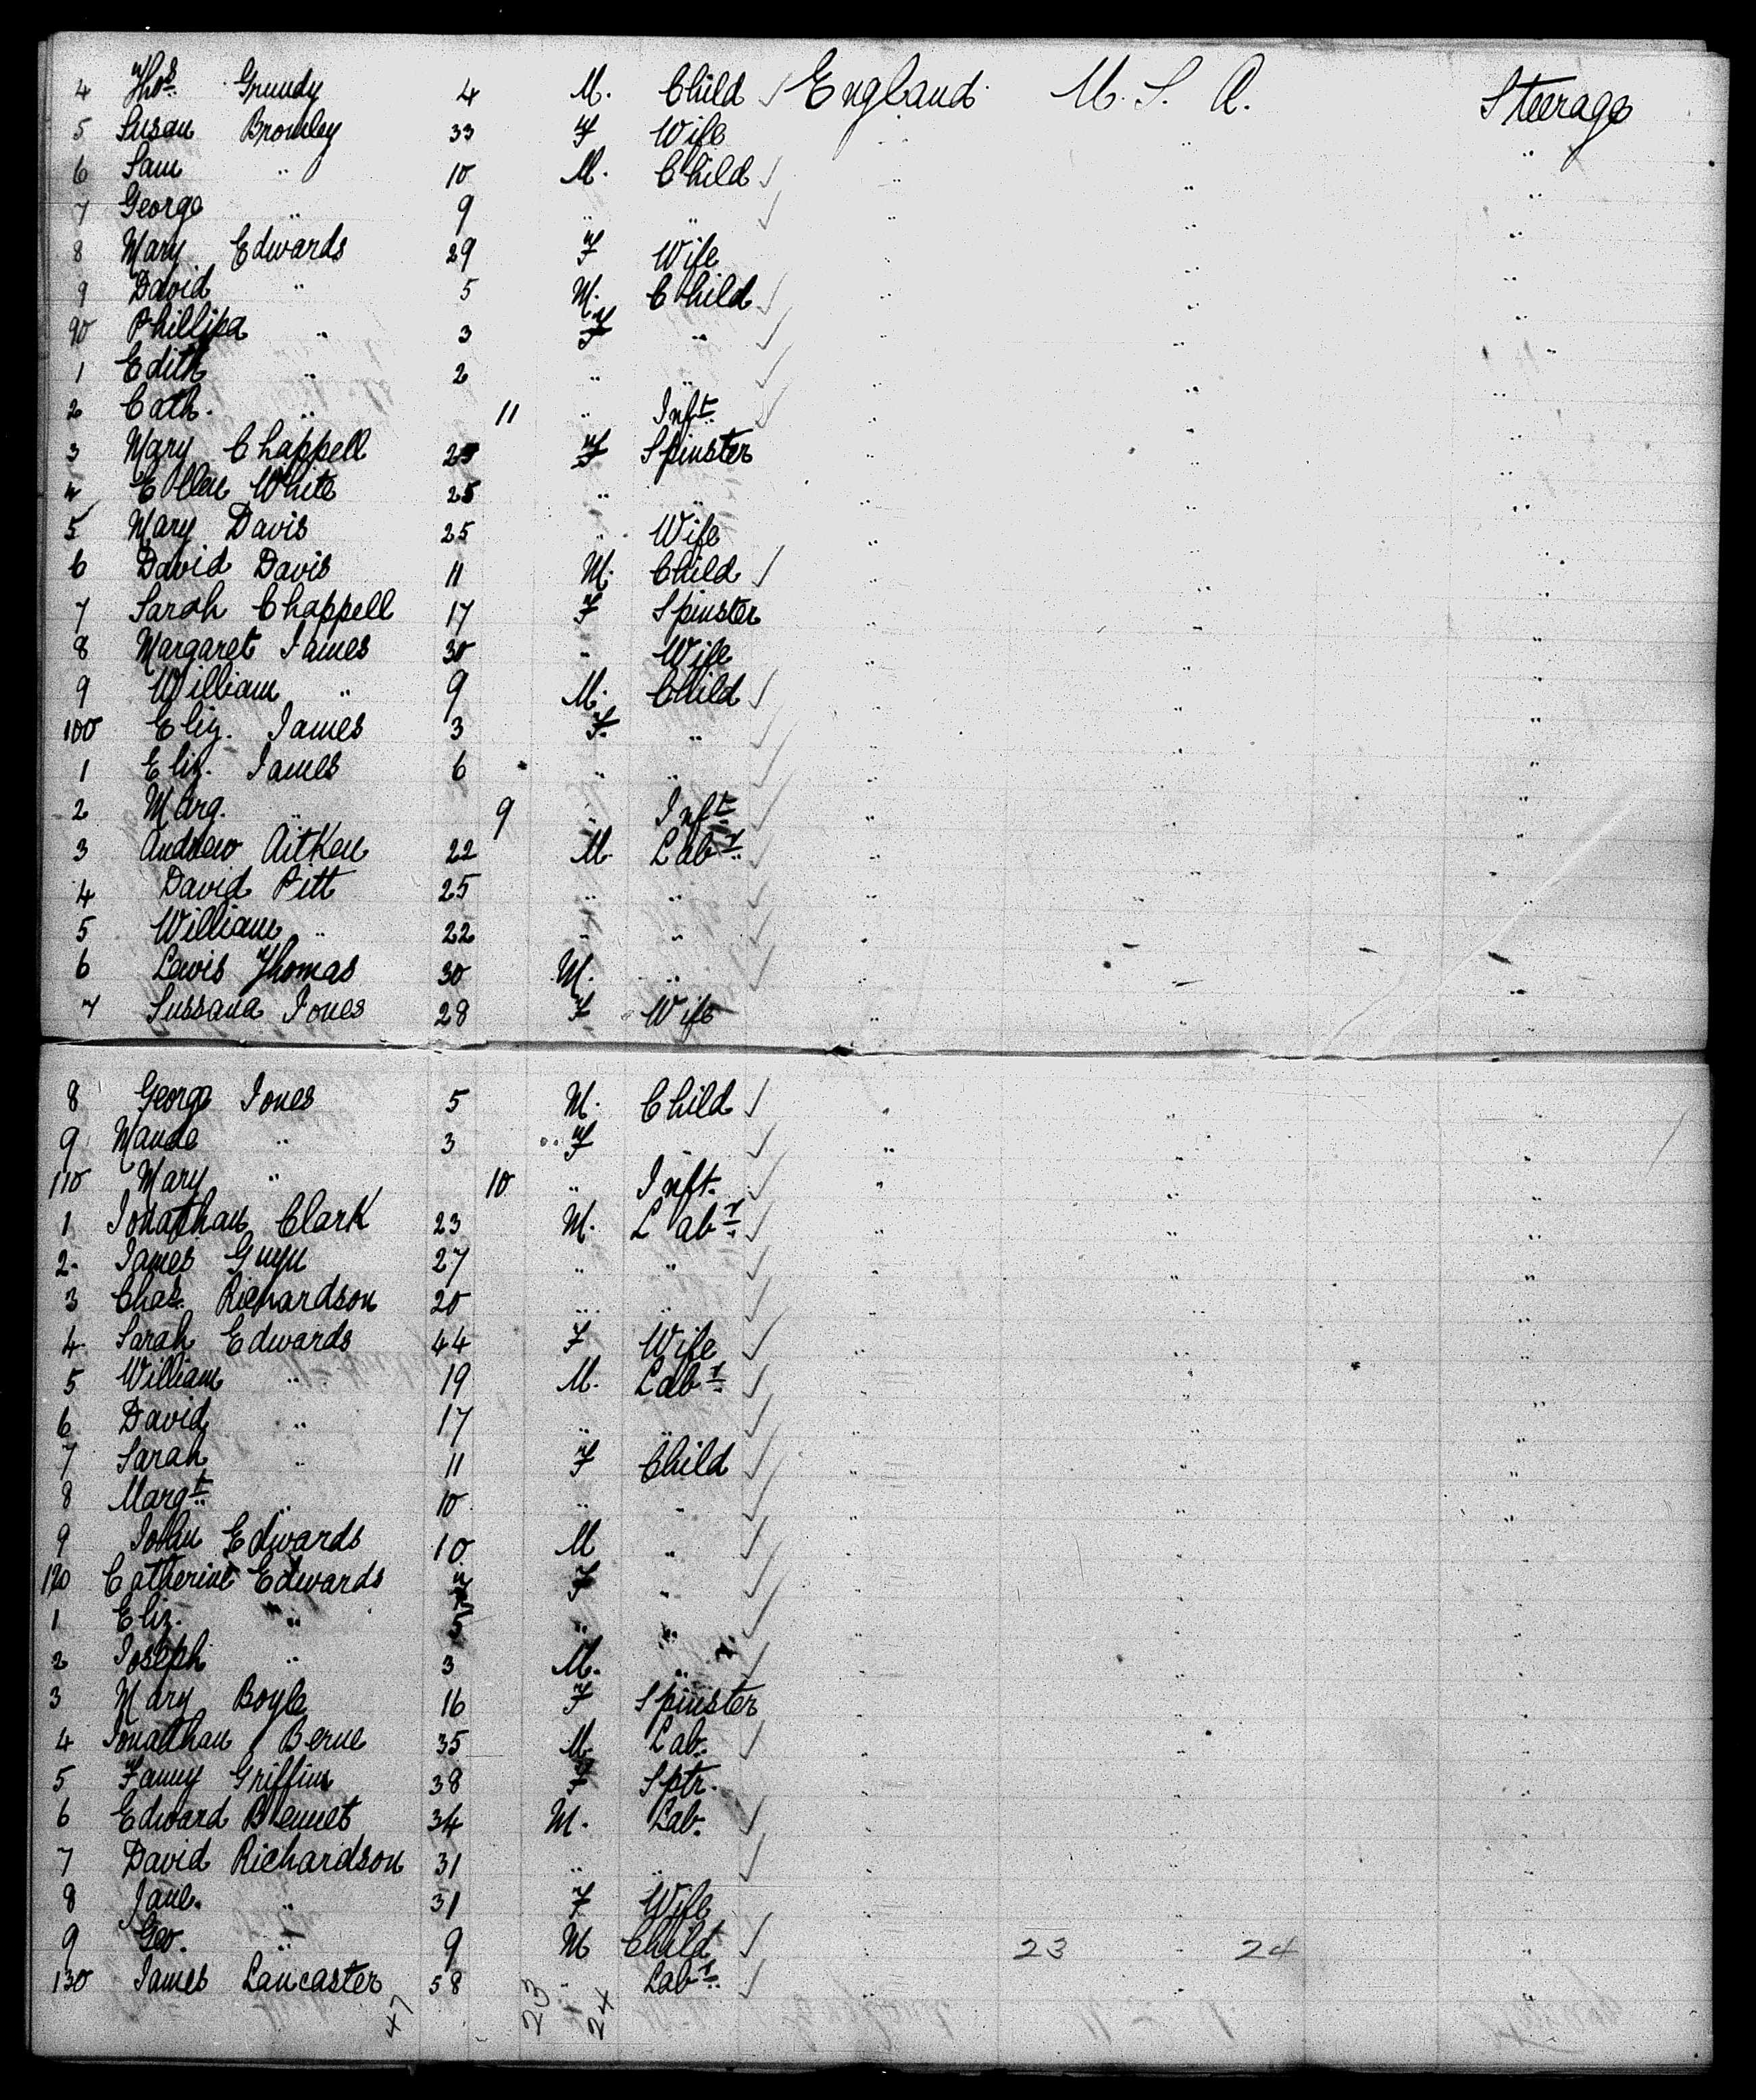 4 Thos. Grundy 4 M. Child ✓ England U. S. A. Steerage
5 Susan Bromley 33 F Wife " " "
6 Sam " 10 M. Child ✓ " " "
7 George " 9 " " ✓ " " "
8 Mary Edwards 29 F Wife " " "
9 David " 5 M. Child ✓ " " "
90 Phillipa " 3 F " ✓ " " "
1 Edith " 2 " " ✓ " " "
2 Cath. " 11 " Inft. ✓ " " "
3 Mary Chappell F Spinster " " "
4 Ellen White 25 " " " " "
5 Mary Davis 25 " Wife " " "
6 David Davis 11 M. Child ✓ " " "
7 Sarah Chappell 17 F Spinster " " "
8 Margaret James 30 " Wife " " "
9 William " 9 M. Child ✓ " " "
100 Eliz. James 3 F. " ✓ " " "
1 Eliz. James 6 " " ✓ " " "
2 Marg. " 9 " Inft. ✓ " " "
3 Andrew Aitken 22 M. Labr. ✓ " " "
4 David Pitt 25 " " ✓ " " "
5 William " 22 " " ✓ " " "
6 Lewis Thomas 30 M. " ✓ " " "
7 Sussana Jones 28 F Wife " " "
8 George Jones 5 M. Child ✓ " " "
9 Maude " 3 " F ✓ " " "
110 Mary " 10 " Inft. ✓ " " "
1 Jonathan Clark 23 M. Labr. ✓ " " "
2. James Guyn 27 " " ✓ " " "
3 Chas. Richardson 20 " " ✓ " " "
4 Sarah Edwards 44 F Wife ✓ " " "
5 William " 19 M. Labr. ✓ " " "
6 David " 17 " " ✓ " " "
7 Sarah " 11 F Child ✓ " " "
8 Margt. " 10 " " ✓ " " "
9 John Edwards 10 M " ✓ " " "
120 Catherine Edwards 7 F " ✓ " " "
1 Eliz. " 5 " " ✓ " " "
2 Joseph " 3 M. " ✓ " " "
3 Mary Boyle 16 F Spinster " " "
4 Jonathan Berne 35 M Lab. ✓ " " "
5 Fanny Griffin 38 F Sptr. " " "
6 Edward Bennet 34 M. Lab. ✓ " " "
7 David Richardson 31 " " ✓ " " "
8 Jane. " 31 F Wife " " "
9 Geo. " 9 M Child ✓ " 23 " 24 "
130 James Lancaster 58 " Labr. ✓ " " "
47 23 24